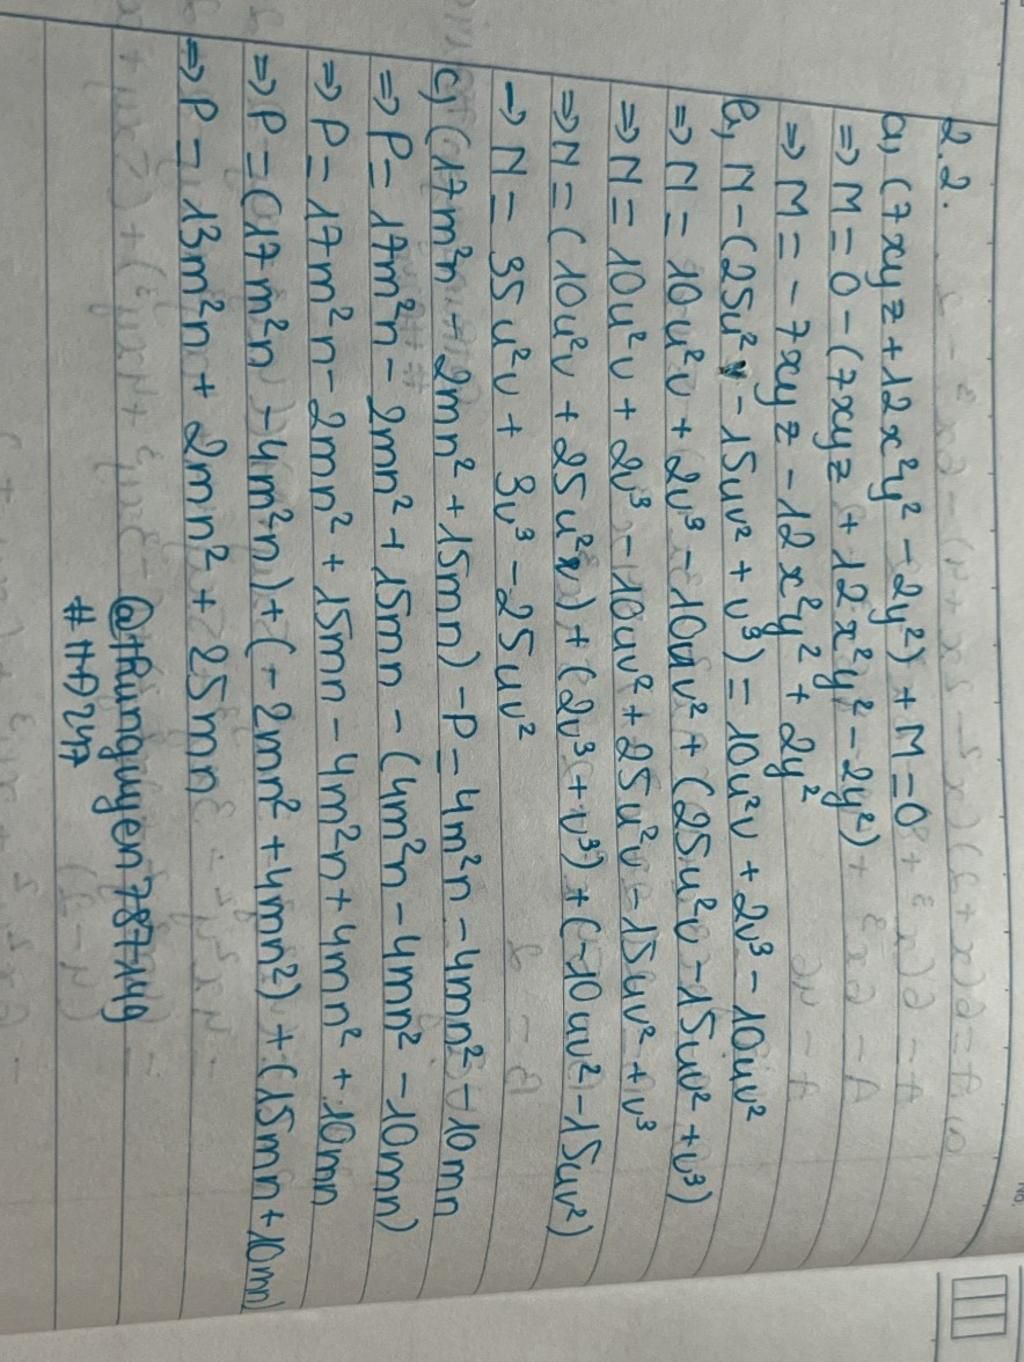 2.2.
a, (7xyz + 12x²y² - 2y²) + M = 0
=> M = 0 - (7xyz + 12x²y² - 2y²)
=> M = - 7xyz - 12x²y² + 2y²
b, N - (25u²v - 15uv² + v³) = 10u²v + 2v³ - 10uv²
=> N = 10u²v + 2v³ - 10uv² + (25u²v - 15uv² + v³)
=> N = 10u²v + 2v³ - 10uv² + 25u²v - 15uv² + v³
=> N = (10u²v + 25u²v) + (2v³ + v³) + (-10uv² - 15uv²)
→ N = 35u²v + 3v³ - 25uv²
c, (17m²n - 2mn² + 15mn) - P = 4m²n - 4mn² - 10mn
=> P = 17m²n - 2mn² + 15mn - (4m²n - 4mn² - 10mn)
=> P = 17m²n - 2mn² + 15mn - 4m²n + 4mn² + 10mn
=> P = (17m²n - 4m²n) + (-2mn² + 4mn²) + (15mn + 10mn)
=> P = 13m²n + 2mn² + 25mn